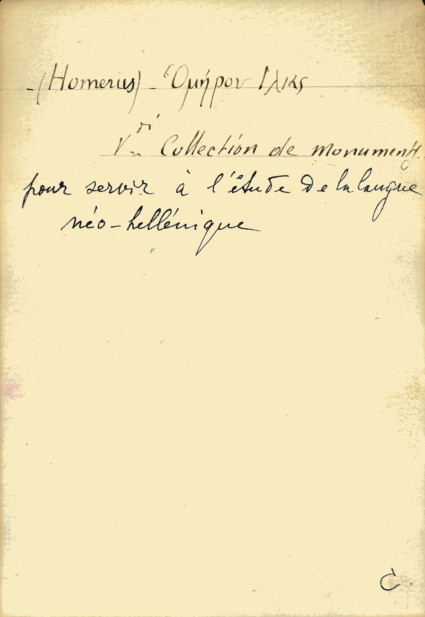 -(Homerus) - Ὁμήρου Ἰλιάς
Vdi Collection de monuments
pour servir à l'étude de la langue
néo-hellénique
C.